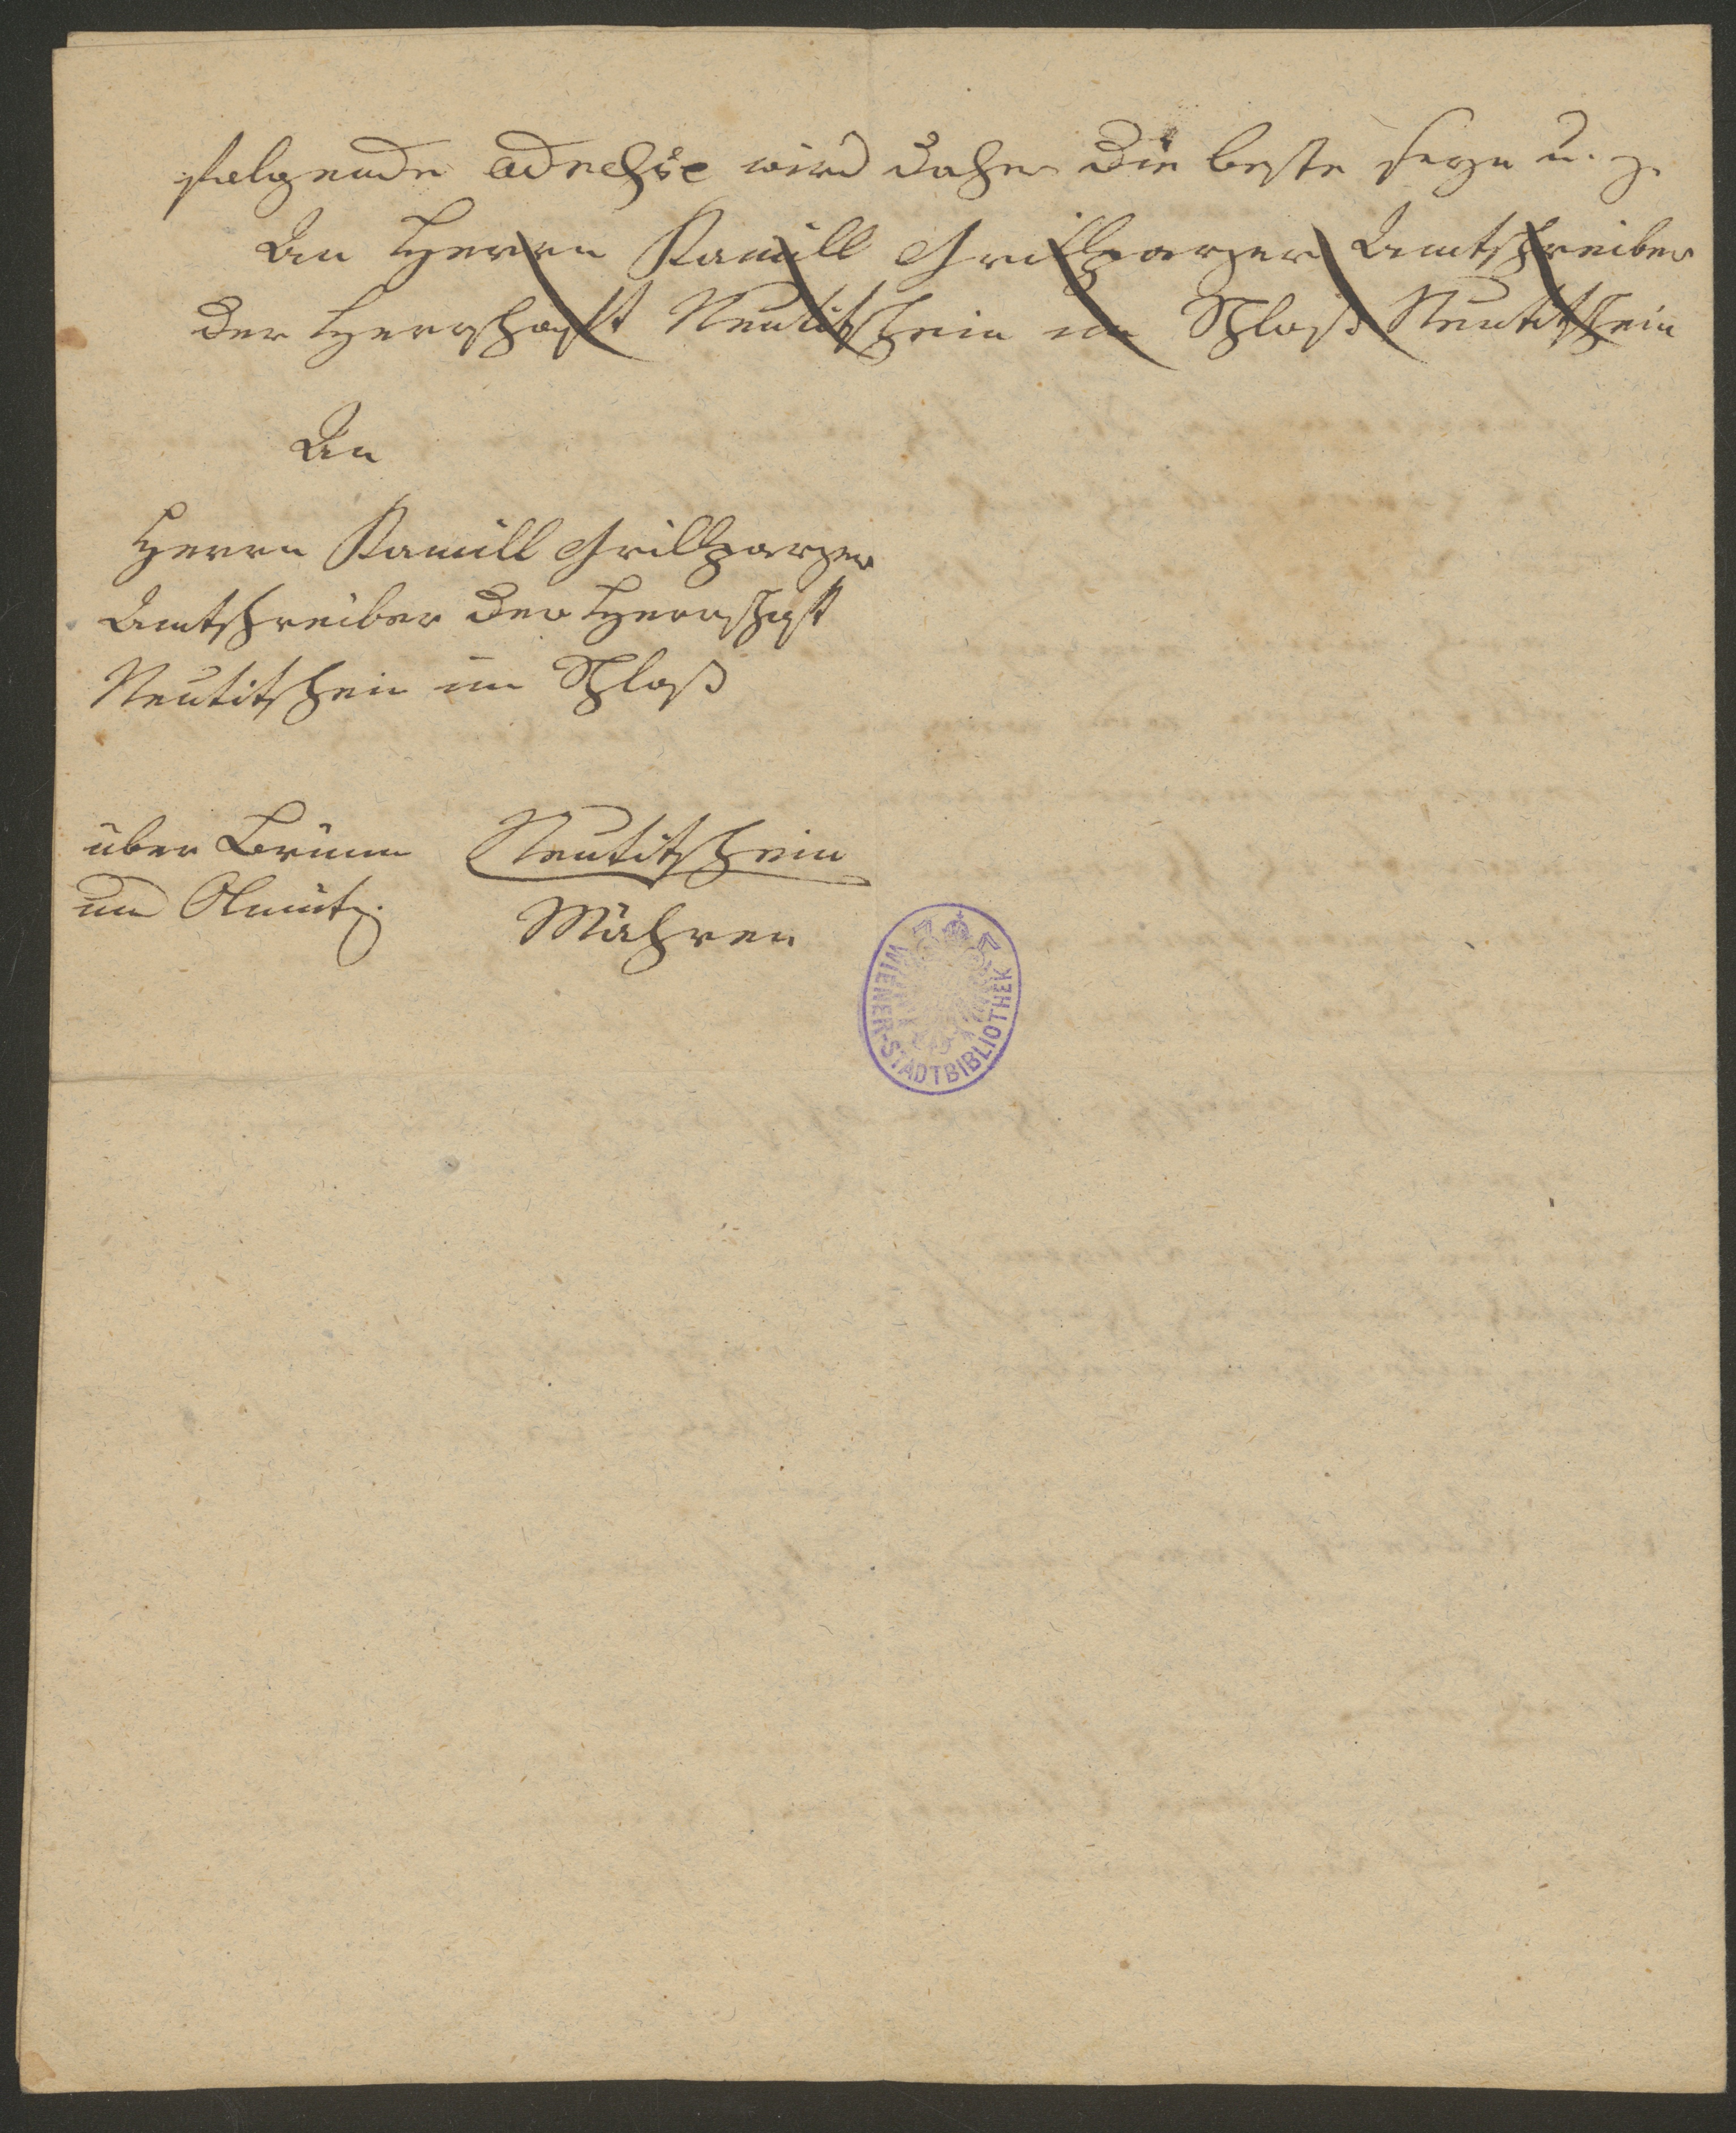 folgende adresse wird daher die beste seyn u. z.
An Herrn Kamill Grillparzer Amtschreiber
der Herrschaft Neutitschein im Schloß Neutitschein
An
Herrn Kamill Grillparzer
Amtschreiber der Herrschaft
Neutitschein im Schloß
über Brünn
und Olmütz.
Neutitschein
Mähren
WIENER-STADTBIBLIOTHEK